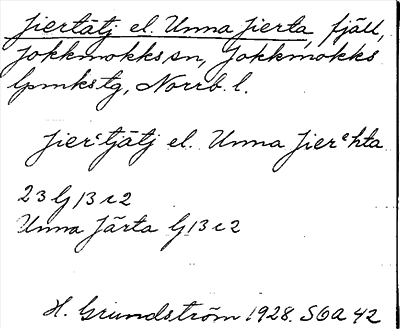 Jiertätj el. Unna Jierta, fjäll,
Jokkmokks sn, Jokkmokks
lpmkstg, Norrb. l.
Jierᵉtjätj el. Unna Jierᵉhta
23 G 13 c 2
Unna Järta G 13 c 2
H. Grundström 1928. SOA 42